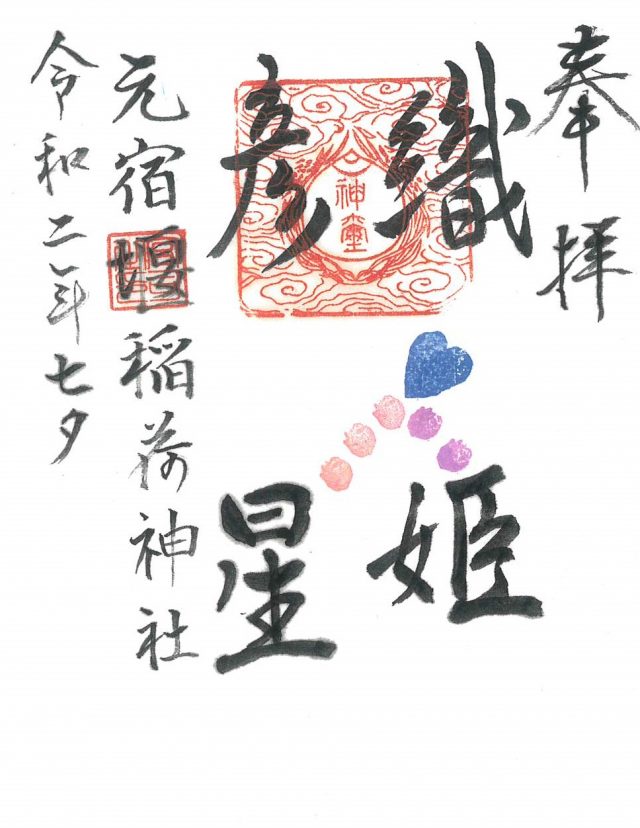 奉拝
織姫
彦星
神璽
元宿堰稲荷神社
令和二年七夕